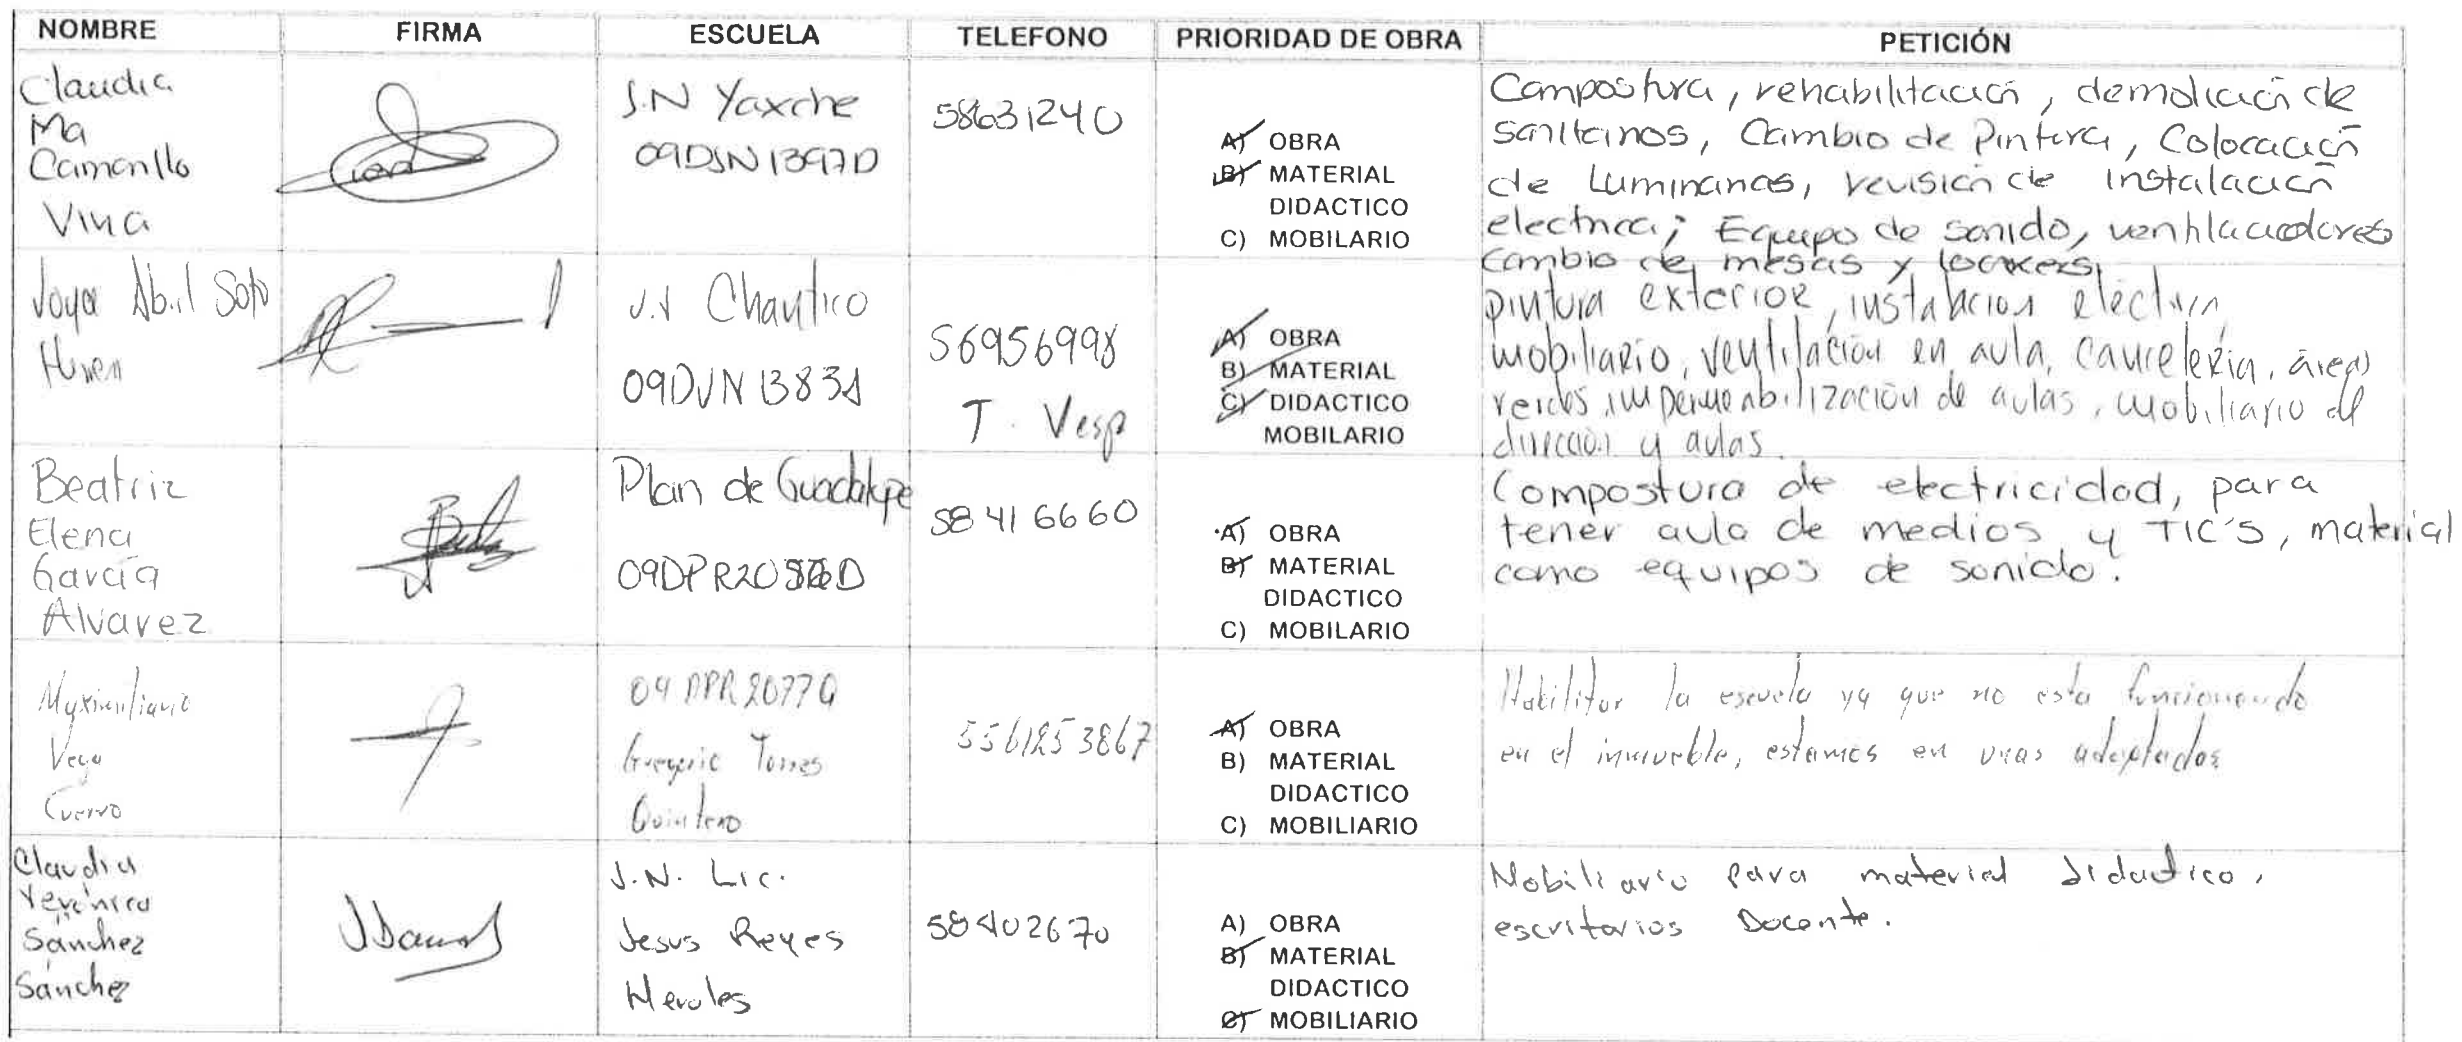 NOMBRE FIRMA ESCUELA TELEFONO PRIORIDAD DE OBRA PETICIÓN
Claudia
Ma
Camarillo
Viña
J.N Yaxche
09DJN1397D
58631240
A) OBRA
B) MATERIAL
DIDACTICO
C) MOBILARIO
Compostura, rehabilitación, demolición de
sanitarios, Cambio de Pintura, Colocación
de Luminarias, revisión de instalación
electrica; Equipo de sonido, ventilacadores
Cambio de mesas y lockers
Abil Soto
J.N Chantico
09DJN1383A
56956998
T. Vesp
A) OBRA
B) MATERIAL
C) DIDACTICO
MOBILARIO
pintura exterior, instalacion eléctrica
mobiliario, ventilación en aula, cancelería, áreas
verdes, impermeabilización de aulas, mobiliario de
dirección y aulas.
Beatriz
Elena
García
Alvarez
Plan de Guadalupe
58416660
A) OBRA
B) MATERIAL
DIDACTICO
C) MOBILARIO
Compostura de electricidad, para
tener aula de medios y TIC'S, material
como equipos de sonido.
Maximiliano
Vega
Cuervo
09DPR2077Q
Gregorio Torres
Quintero
5561253867
A) OBRA
B) MATERIAL
DIDACTICO
C) MOBILIARIO
Habilitar la escuela ya que no esta funcionando
en el inmueble, estamos en unas adaptadas
Claudia
Verónica
Sánchez
Sánchez
J.N. Lic.
Jesus Reyes
Heroles
58402670
A) OBRA
B) MATERIAL
DIDACTICO
C) MOBILIARIO
Mobiliario para material didactico,
escritorios Docente.